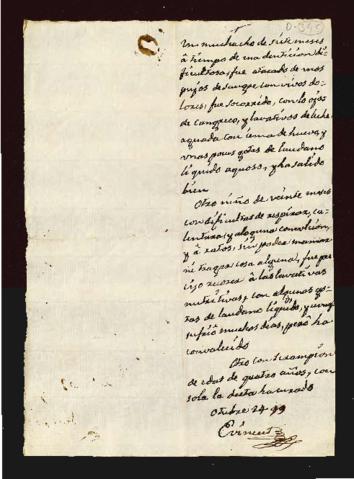 Un muchacho de siete meses
á tiempo de una denticion di-
ficultosa, fue atacado de unos
pujos de sangre con vivos do-
lores; fue socorrido, con los ojos
de cangrejo, y lavativas de leche
aguada con iema de huevo, y
unas pocas gotas de laudano
liquido aquoso, y ha salido
bien
Otro niño de veinte meses
con dificultad de respirar, ca-
lentura, y alguna convulsion,
y á ratos, sin poder mamar
ni tragar cosa alguna, fue pre-
ciso recurrir á las lavativas
nutritivas, con algunas go-
tas de laudano liquido, y aunq
sufrió muchos dias, pero ha
convalecido
Otro con sarampion
de edad de quatro años, con
sola la dieta ha curado
Otubre 24 99